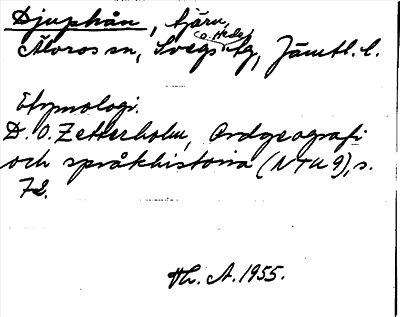 Djuphån, tjärn,
Älvros sn, Svegs o. Heds tg, Jämtl. l.
Etymologi.
D. O. Zetterholm, Ordgeografi
och språkhistoria (NTU 9), s.
72.
Th. A. 1955.